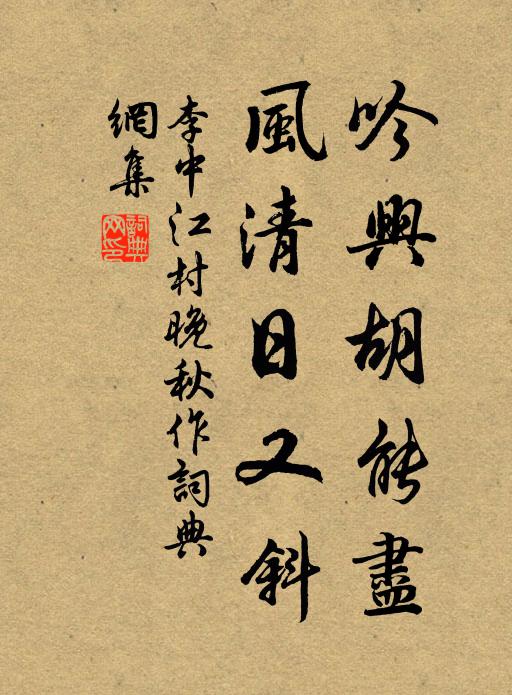 吟興胡能盡
風清日又斜
李中江村晚秋作詞典
網集
詞典
网印